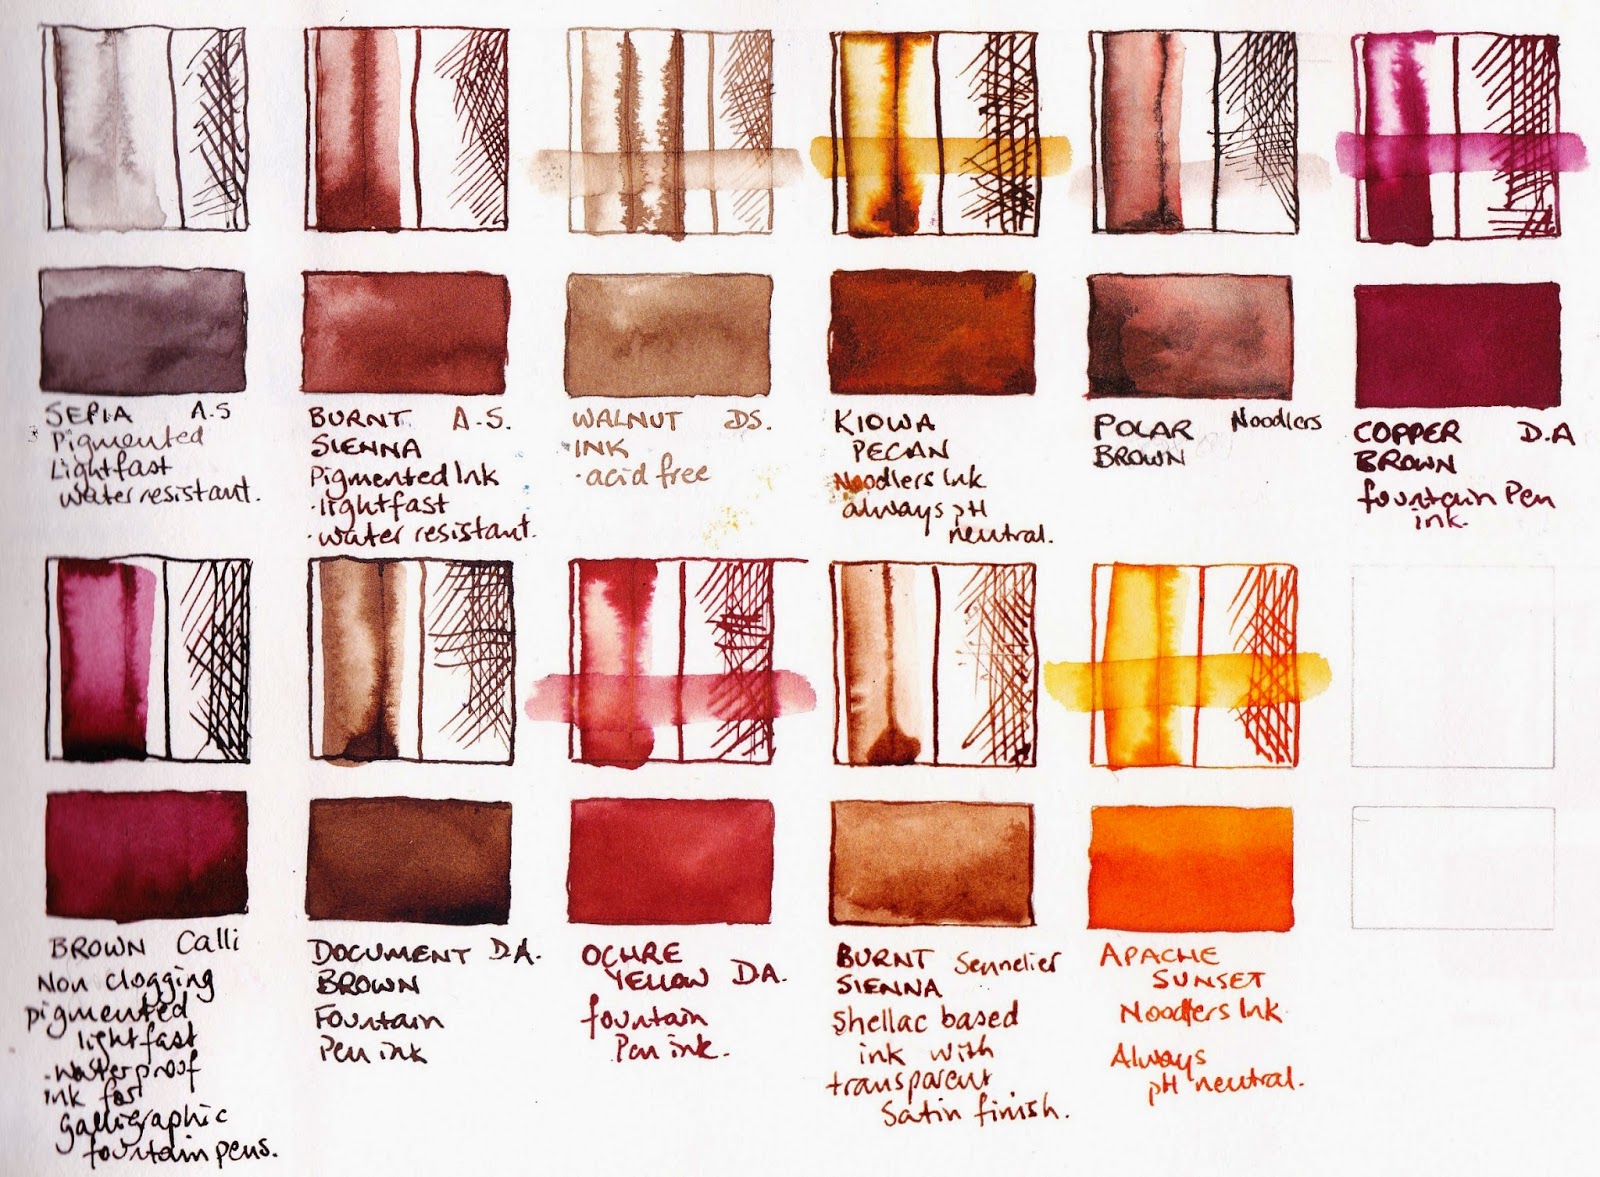 SEPIA A.S
Pigmented
Lightfast
water resistant.
BURNT A.S.
SIENNA
Pigmented Ink
·lightfast
·water resistant.
WALNUT DS.
INK
·acid free
KIOWA
PECAN
Noodlers Ink
always pH
neutral.
POLAR Noodlers
BROWN
COPPER D.A
BROWN
fountain Pen
ink.
BROWN Calli
Non clogging
pigmented
lightfast
·waterproof
ink for
Calligraphic
fountain pens.
DOCUMENT D.A.
BROWN
Fountain
Pen ink
OCHRE
YELLOW D.A.
fountain
Pen ink.
BURNT Sennelier
SIENNA
Shellac based
ink with
transparent
Satin finish.
APACHE
SUNSET
Noodlers Ink
Always
pH neutral.